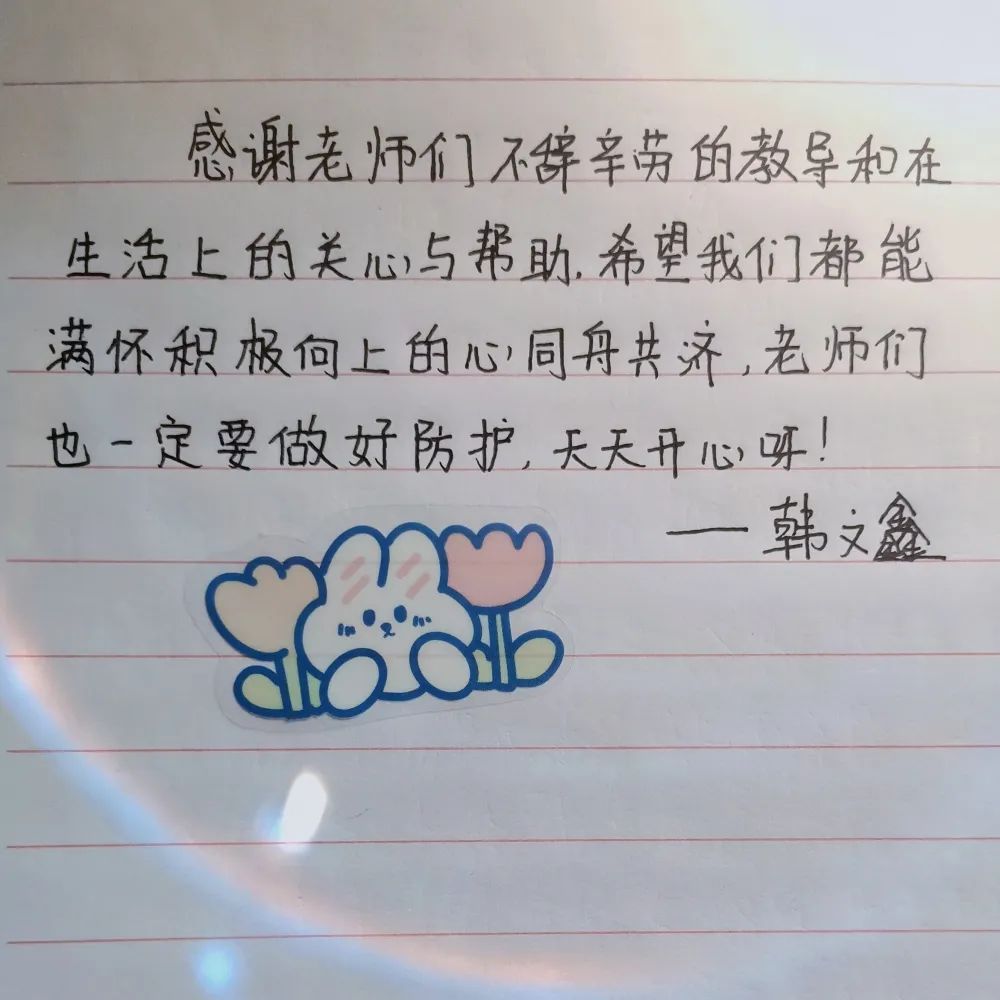 感谢老师们不辞辛劳的教导和在
生活上的关心与帮助.希望我们都能
满怀积极向上的心同舟共济,老师们
也一定要做好防护,天天开心呀!
——韩文鑫